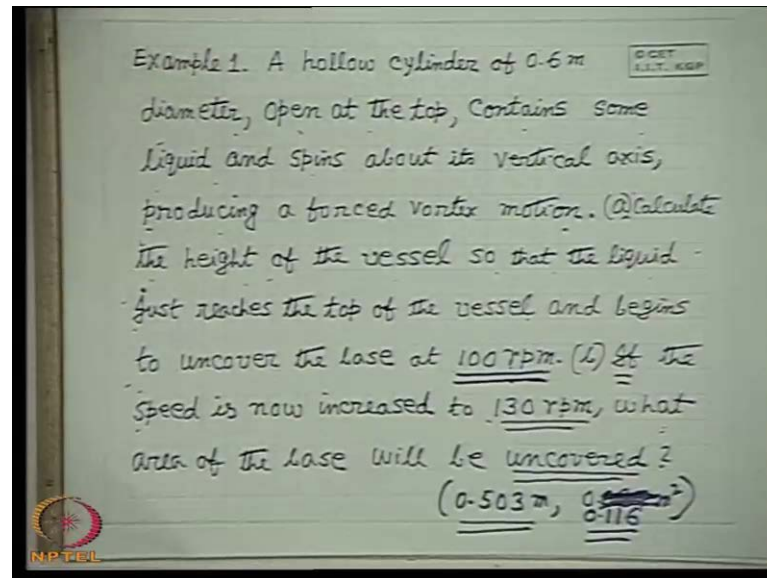 Example 1. A hollow cylinder of 0.6 m
diameter, open at the top, contains some
liquid and spins about its vertical axis,
producing a forced vortex motion. (a) Calculate
the height of the vessel so that the liquid
just reaches the top of the vessel and begins
to uncover the base at 100 rpm. (b) If the
speed is now increased to 130 rpm, what
area of the base will be uncovered?
(0.503 m, 0.116 m²)
© CET
I.I.T. KGP
NPTEL